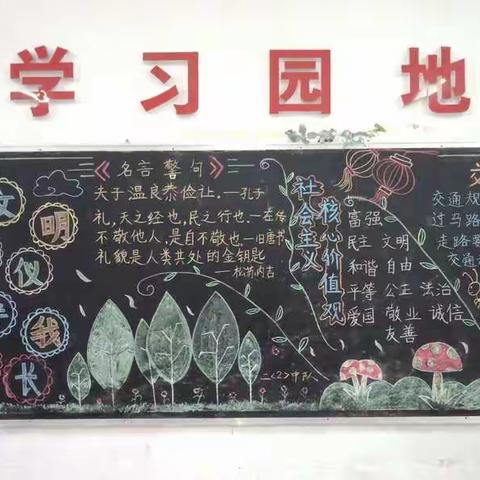 学习园地
文
明
仪
我
长
《名言警句》
夫子温良恭俭让。—孔子
礼,天之经也,民之行也。—左传
不敬他人,是自不敬也—旧唐书
礼貌是人类共处的金钥匙
—松苏内吉
二<2>中队
社会主义
核心价值观
富强
民主 文明
和谐 自由
平等 公正 法治
爱国 敬业 诚信
友善
交通规
过马路
走路
交通